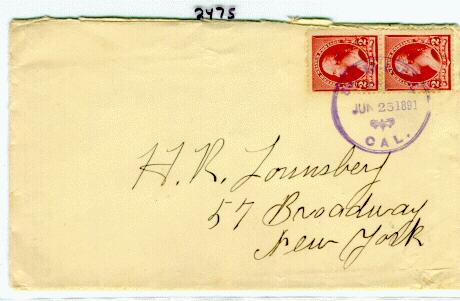 2475
JUN 23 1891
CAL.
H. R. Lounsbery
57 Broadway
New York